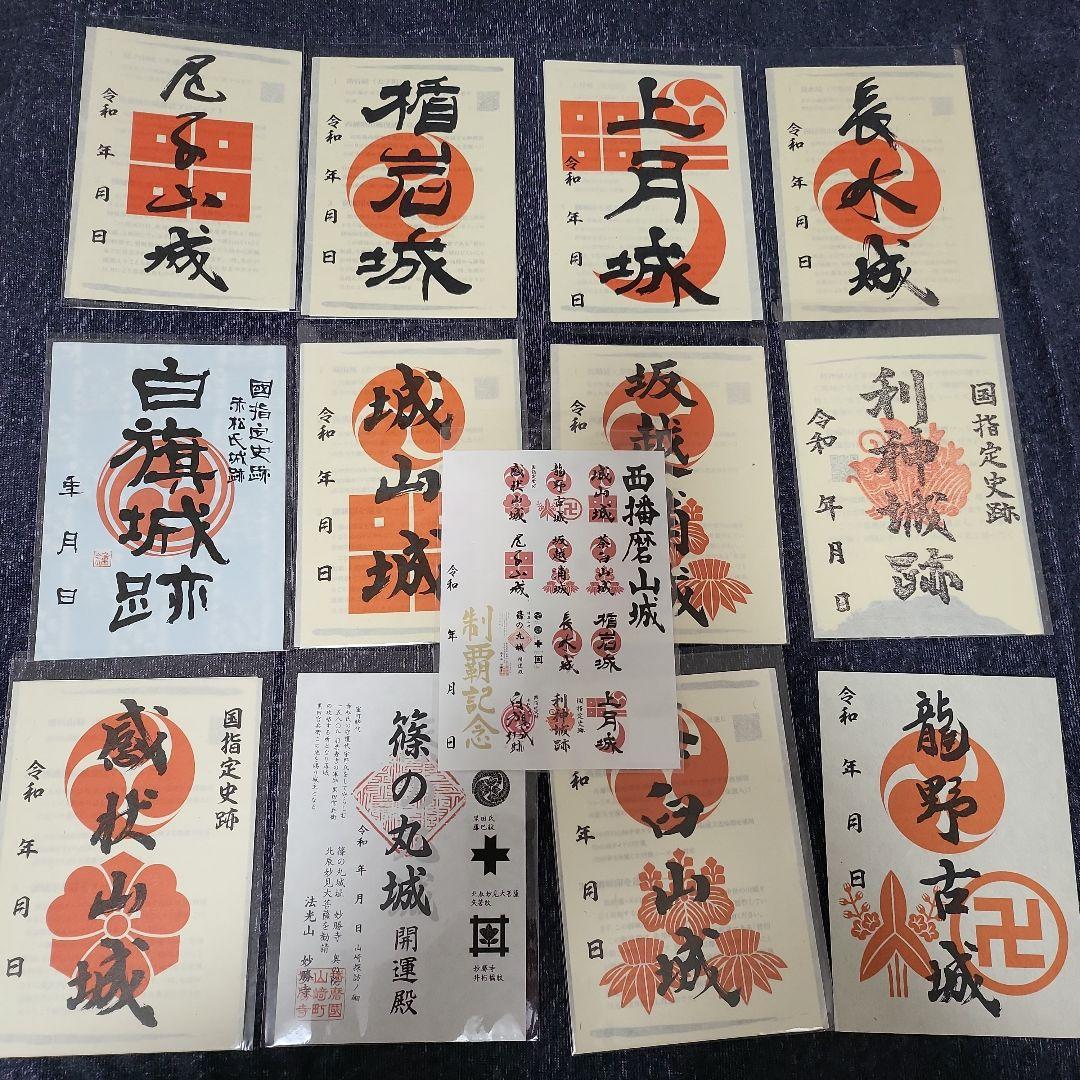 尼子山城
令和 年 月 日
楯岩城
令和 年 月 日
上月城
令和 年 月 日
長水城
令和 年 月 日
國指定史跡
赤松氏城跡
白旗城跡
年 月 日
城山城
令和 年 月 日
坂越浦城
令和
国指定史跡
利神城跡
令和 年 月 日
西播磨山城
城山城
茶臼山城
楯岩城
上月城
龍野古城
坂越浦城
長水城
国指定史跡
利神城跡
感状山城
尼子山城
篠の丸城
白旗城跡
制覇記念
令和 年 月 日
国指定史跡
感状山城
令和 年 月 日
篠の丸城 開運殿
令和 年 月 日
篠の丸城址 妙勝寺
北辰妙見大菩薩を勧請
法光山 妙勝寺
北辰妙見大菩薩
妙勝寺
井桁橘紋
山崎町
臼山城
令和 年 月 日
龍野古城
令和 年 月 日
卍